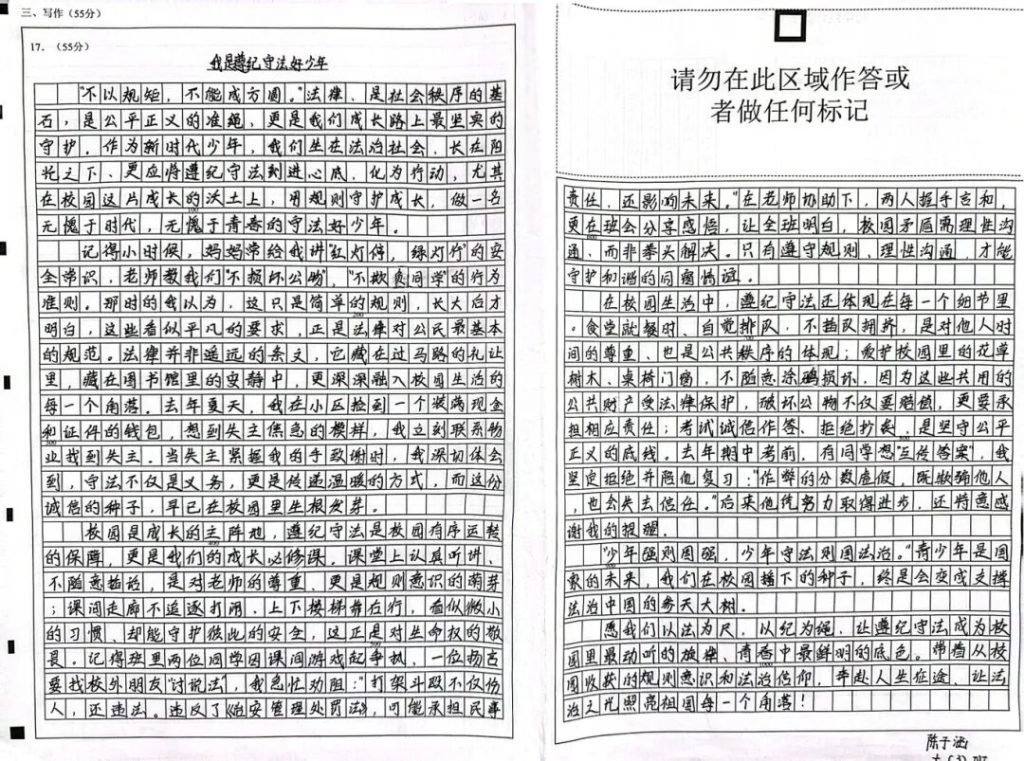 三、写作（55分）
17.（55分）
我是遵纪守法好少年
"不以规矩，不能成方圆。"法律、是社会秩序的基
石，是公平正义的准绳，更是我们成长路上最坚实的
守护。作为新时代少年，我们生在法治社会，长在阳
光之下、更应将遵纪守法刻进心底，化为行动，尤其
在校园这片成长的沃土上，用规则守护成长，做一名
无愧于时代，无愧于青春的守法好少年。
记得小时候，妈妈常给我讲"红灯停，绿灯行"的安
全常识，老师教我们"不损坏公物"，"不欺负同学"的行为
准则。那时的我以为，这只是简单的规则，长大后才
明白，这些看似平凡的要求，正是法律对公民最基本
的规范。法律并非遥远的条文，它藏在过马路的礼让
里，藏在图书馆里的安静中，更深深融入校园生活的
每一个角落。去年夏天，我在小区捡到一个装满现金
和证件的钱包，想到失主焦急的模样，我立刻联系物
业找到失主。当失主紧握我的手致谢时，我深切体会
到，守法不仅是义务，更是传递温暖的方式，而这份
诚信的种子，早已在校园里生根发芽。
校园是成长的主阵地，遵纪守法是校园有序运转
的保障，更是我们的成长必修课。课堂上认真听讲、
不随意插话，是对老师的尊重，更是规则意识的萌芽
；课间走廊不追逐打闹、上下楼梯靠右行，看似微小
的习惯、却能守护彼此的安全，这正是对生命权的敬
畏。记得班里两位同学因课间游戏起争执，一位扬言
要找校外朋友"讨说法"，我急忙劝阻："打架斗殴不仅伤
人，还违法。违反了《治安管理处罚法》，可能承担民事
请勿在此区域作答或
者做任何标记
责任，还影响未来。"在老师协助下，两人握手言和，
更在班会分享感悟，让全班明白，校园矛盾需理性沟
通、而非拳头解决。只有遵守规则、理性沟通，才能
守护和谐的同窗情谊。
在校园生活中，遵纪守法还体现在每一个细节里
。食堂就餐时、自觉排队，不插队拥挤，是对他人时
间的尊重、也是公共秩序的体现；爱护校园里的花草
树木、桌椅门窗，不随意涂鸦损坏，因为这些共用的
公共财产受法律保护，破坏公物不仅要赔偿，更要承
担相应责任；考试诚信作答、拒绝抄袭、是坚守公平
正义的底线。去年期中考前，有同学想"互传答案"，我
坚定拒绝并陪他复习："作弊的分数虚假，既欺骗他人
，也会失去信任。"后来他凭努力取得进步，还特意感
谢我的提醒。
"少年强则国强，少年守法则国法治。"青少年是国
家的未来，我们在校园播下的种子，终是会变成支撑
法治中国的参天大树。
愿我们以法为尺，以纪为绳，让遵纪守法成为校
园里最动听的旋律、青春中最鲜明的底色。带着从校
园收获的规则意识和法治信仰，奔赴人生征途、让法
治之光照亮祖国每一个角落！
陈子涵